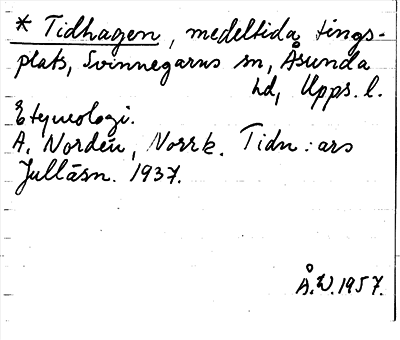 * Tidhagen, medeltida tings-
plats, Svinnegarns sn, Åsunda
hd, Upps. l.
Etymologi.
A. Nordén, Norrk. Tidn:ars
Julläsn. 1937.
Å.W.1957.